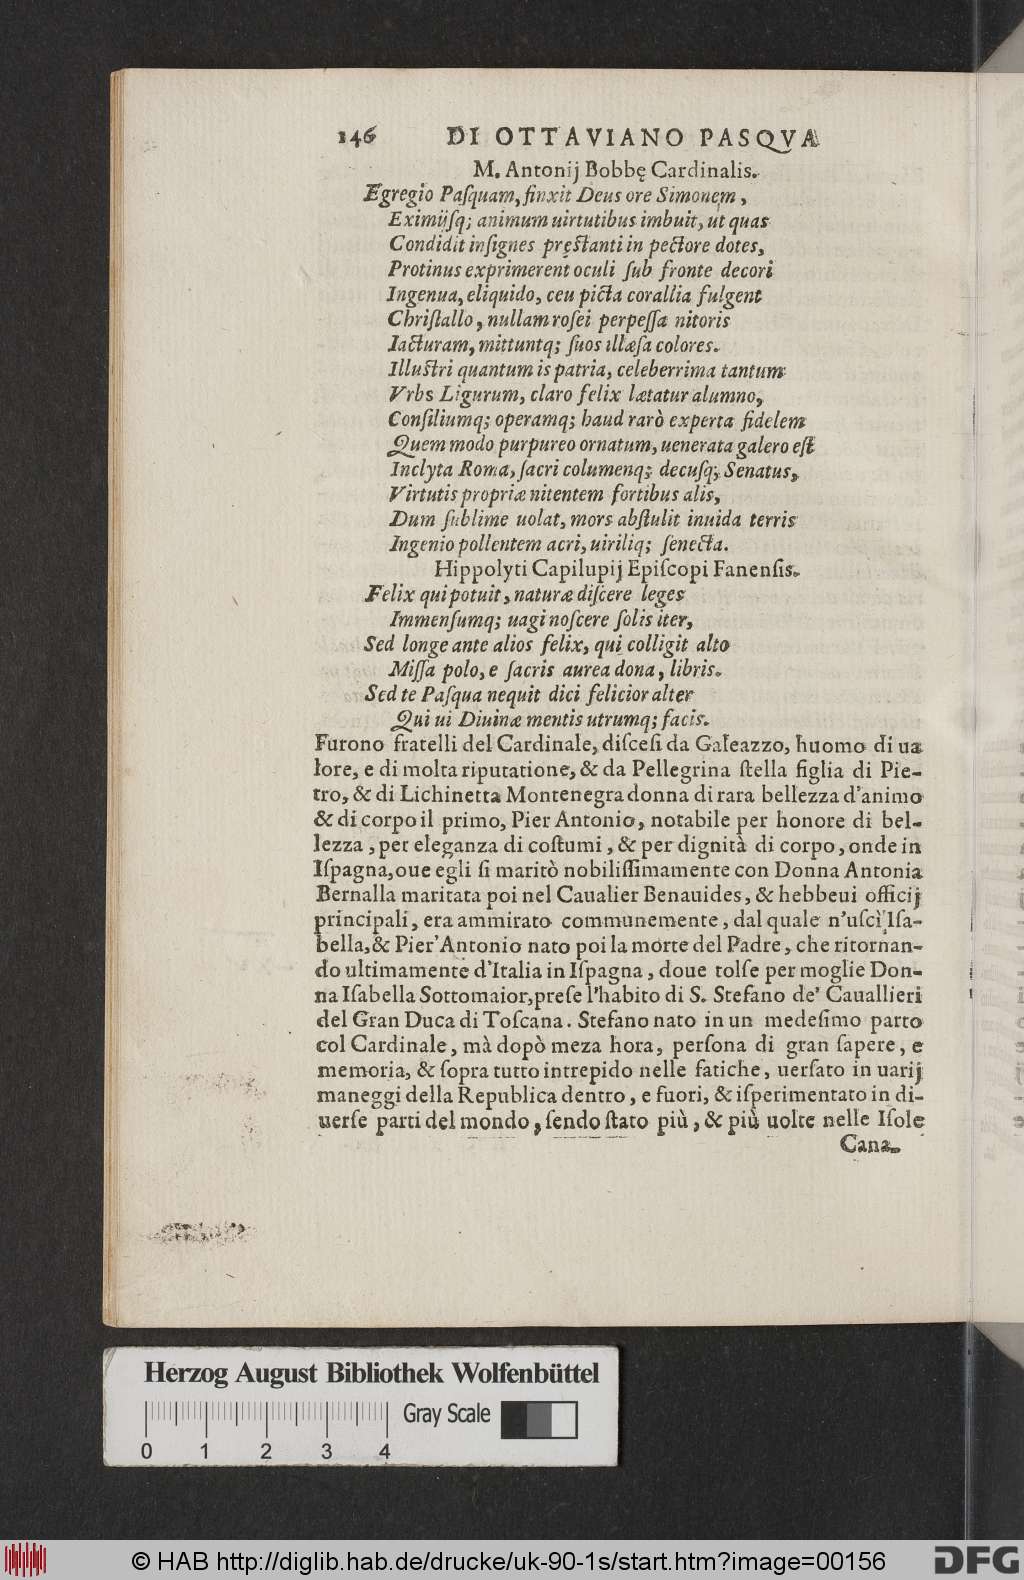 146 DI OTTAVIANO PASQVA
M. Antonij Bobbę Cardinalis.
Egregio Paſquam, finxit Deus ore Simonem,
Eximijſq; animum uirtutibus imbuit, ut quas
Condidit inſignes pręſtanti in pectore dotes,
Protinus exprimerent oculi ſub fronte decori
Ingenua, eliquido, ceu picta corallia fulgent
Chriſtallo, nullam roſei perpeſſa nitoris
Iacturam, mittuntq; ſuos illæſa colores.
Illuſtri quantum is patria, celeberrima tantum
Vrbs Ligurum, claro felix lætatur alumno,
Conſiliumq; operamq; haud rarò experta fidelem
Quem modo purpureo ornatum, uenerata galero eſt
Inclyta Roma, ſacri columenq; decuſq; Senatus,
Virtutis propriæ nitentem fortibus alis,
Dum ſublime uolat, mors abſtulit inuida terris
Ingenio pollentem acri, uiriliq; ſenecta.
Hippolyti Capilupij Epiſcopi Fanenſis.
Felix qui potuit, naturæ diſcere leges
Immenſumq; uagi noſcere ſolis iter,
Sed longe ante alios felix, qui colligit alto
Miſſa polo, e ſacris aurea dona, libris.
Sed te Paſqua nequit dici felicior alter
Qui ui Diuinæ mentis utrumq; facis.
Furono fratelli del Cardinale, diſceſi da Galeazzo, huomo di ua
lore, e di molta riputatione, & da Pellegrina ſtella figlia di Pie-
tro, & di Lichinetta Montenegra donna di rara bellezza d'animo
& di corpo il primo, Pier Antonio, notabile per honore di bel-
lezza, per eleganza di coſtumi, & per dignità di corpo, onde in
Iſpagna, oue egli ſi maritò nobiliſſimamente con Donna Antonia
Bernalla maritata poi nel Caualier Benauides, & hebbeui officij
principali, era ammirato communemente, dal quale n'uſcì Iſa-
bella, & Pier'Antonio nato poi la morte del Padre, che ritornan-
do ultimamente d'Italia in Iſpagna, doue tolſe per moglie Don-
na Iſabella Sottomaior, preſe l'habito di S. Stefano de' Cauallieri
del Gran Duca di Toſcana. Stefano nato in un medeſimo parto
col Cardinale, mà dopò meza hora, perſona di gran ſapere, e
memoria, & ſopra tutto intrepido nelle fatiche, uerſato in uarij
maneggi della Republica dentro, e fuori, & iſperimentato in di-
uerſe parti del mondo, ſendo ſtato più, & più uolte nelle Iſole
Cana-
Herzog August Bibliothek Wolfenbüttel
Gray Scale
0 1 2 3 4
© HAB http://diglib.hab.de/drucke/uk-90-1s/start.htm?image=00156
DFG